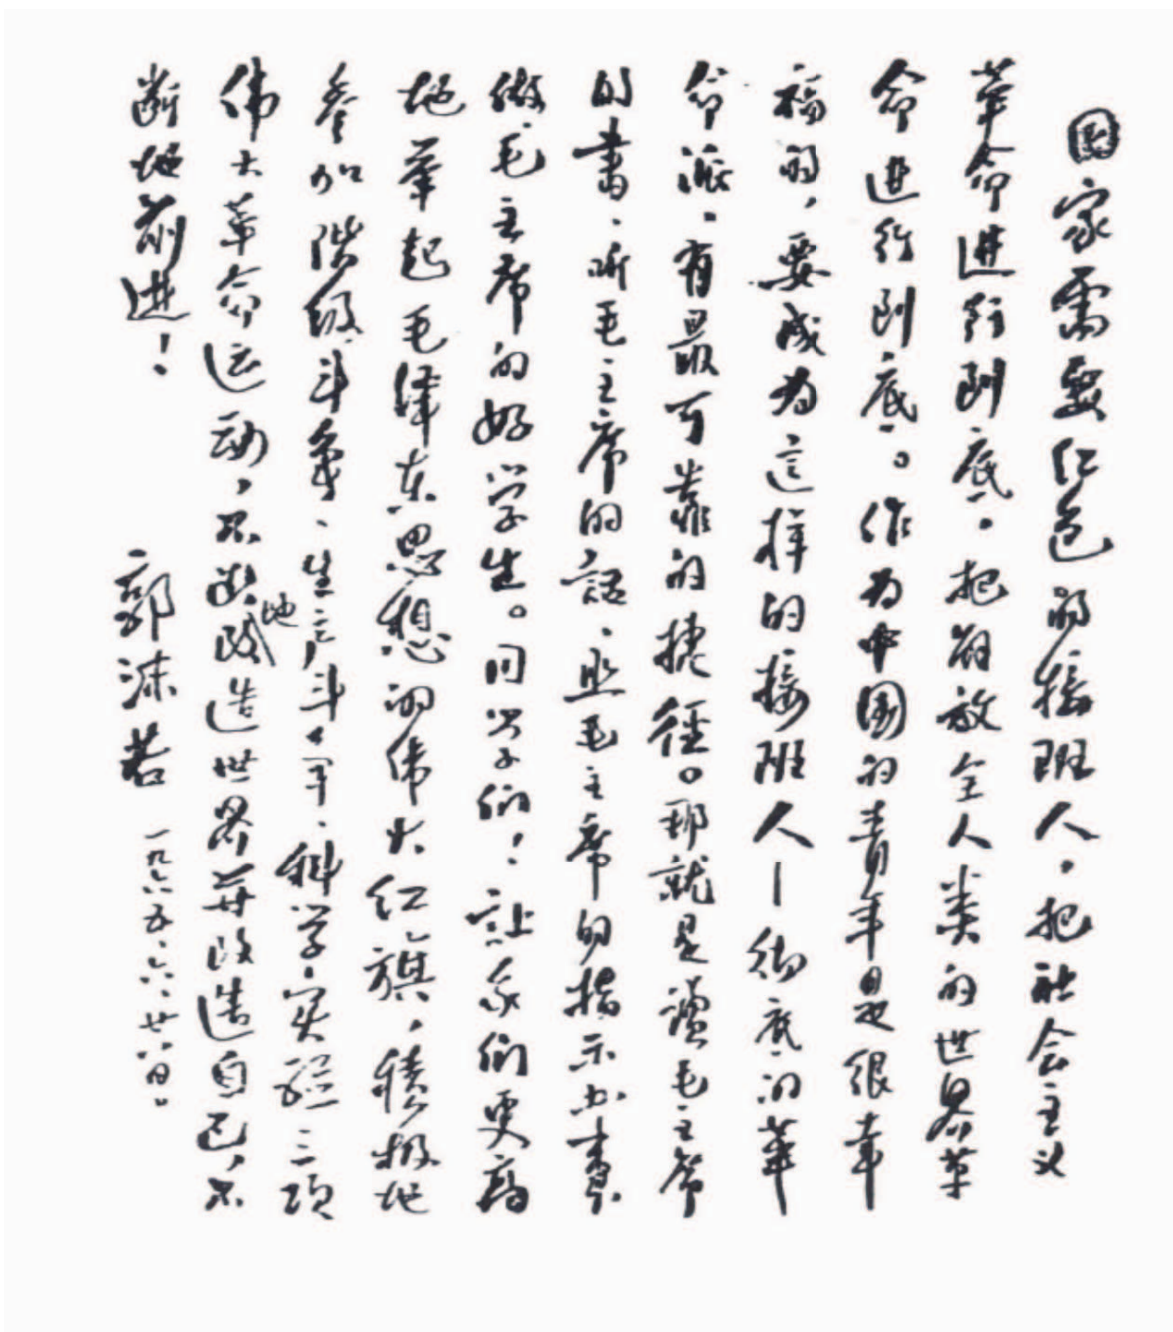 国家需要红色的接班人，把社会主义
革命进行到底，把解放全人类的世界革
命进行到底。作为中国的青年是很幸
福的，要成为这样的接班人—彻底的革
命派，有最可靠的捷径。那就是读毛主席
的书、听毛主席的话、照毛主席的指示办事，
做毛主席的好学生。同学们！让我们更高
地举起毛泽东思想的伟大红旗，积极地
参加阶级斗争、生产斗争、科学实验三项
伟大革命运动，不断地改造世界并改造自己，不
断地前进！
郭沫若 一九六五、六、廿八日。